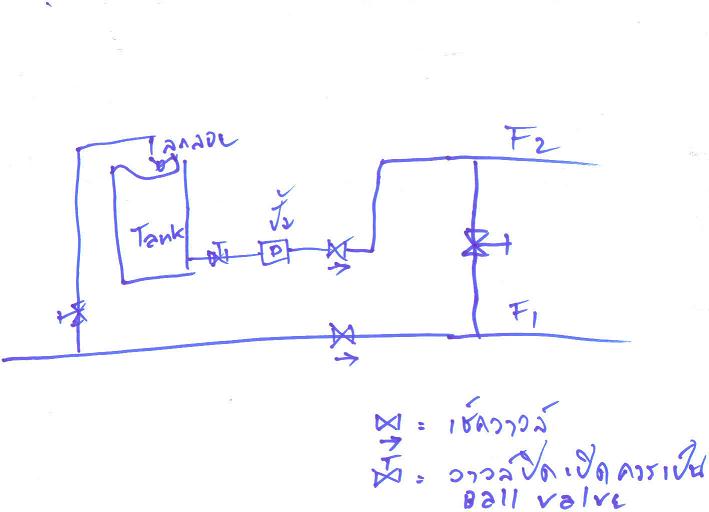 ลูกลอย
F2
Tank
ปั๊ม
P
F1
= เช็ควาวล์
= วาวล์ปิดเปิดควรเป็น
Ball valve